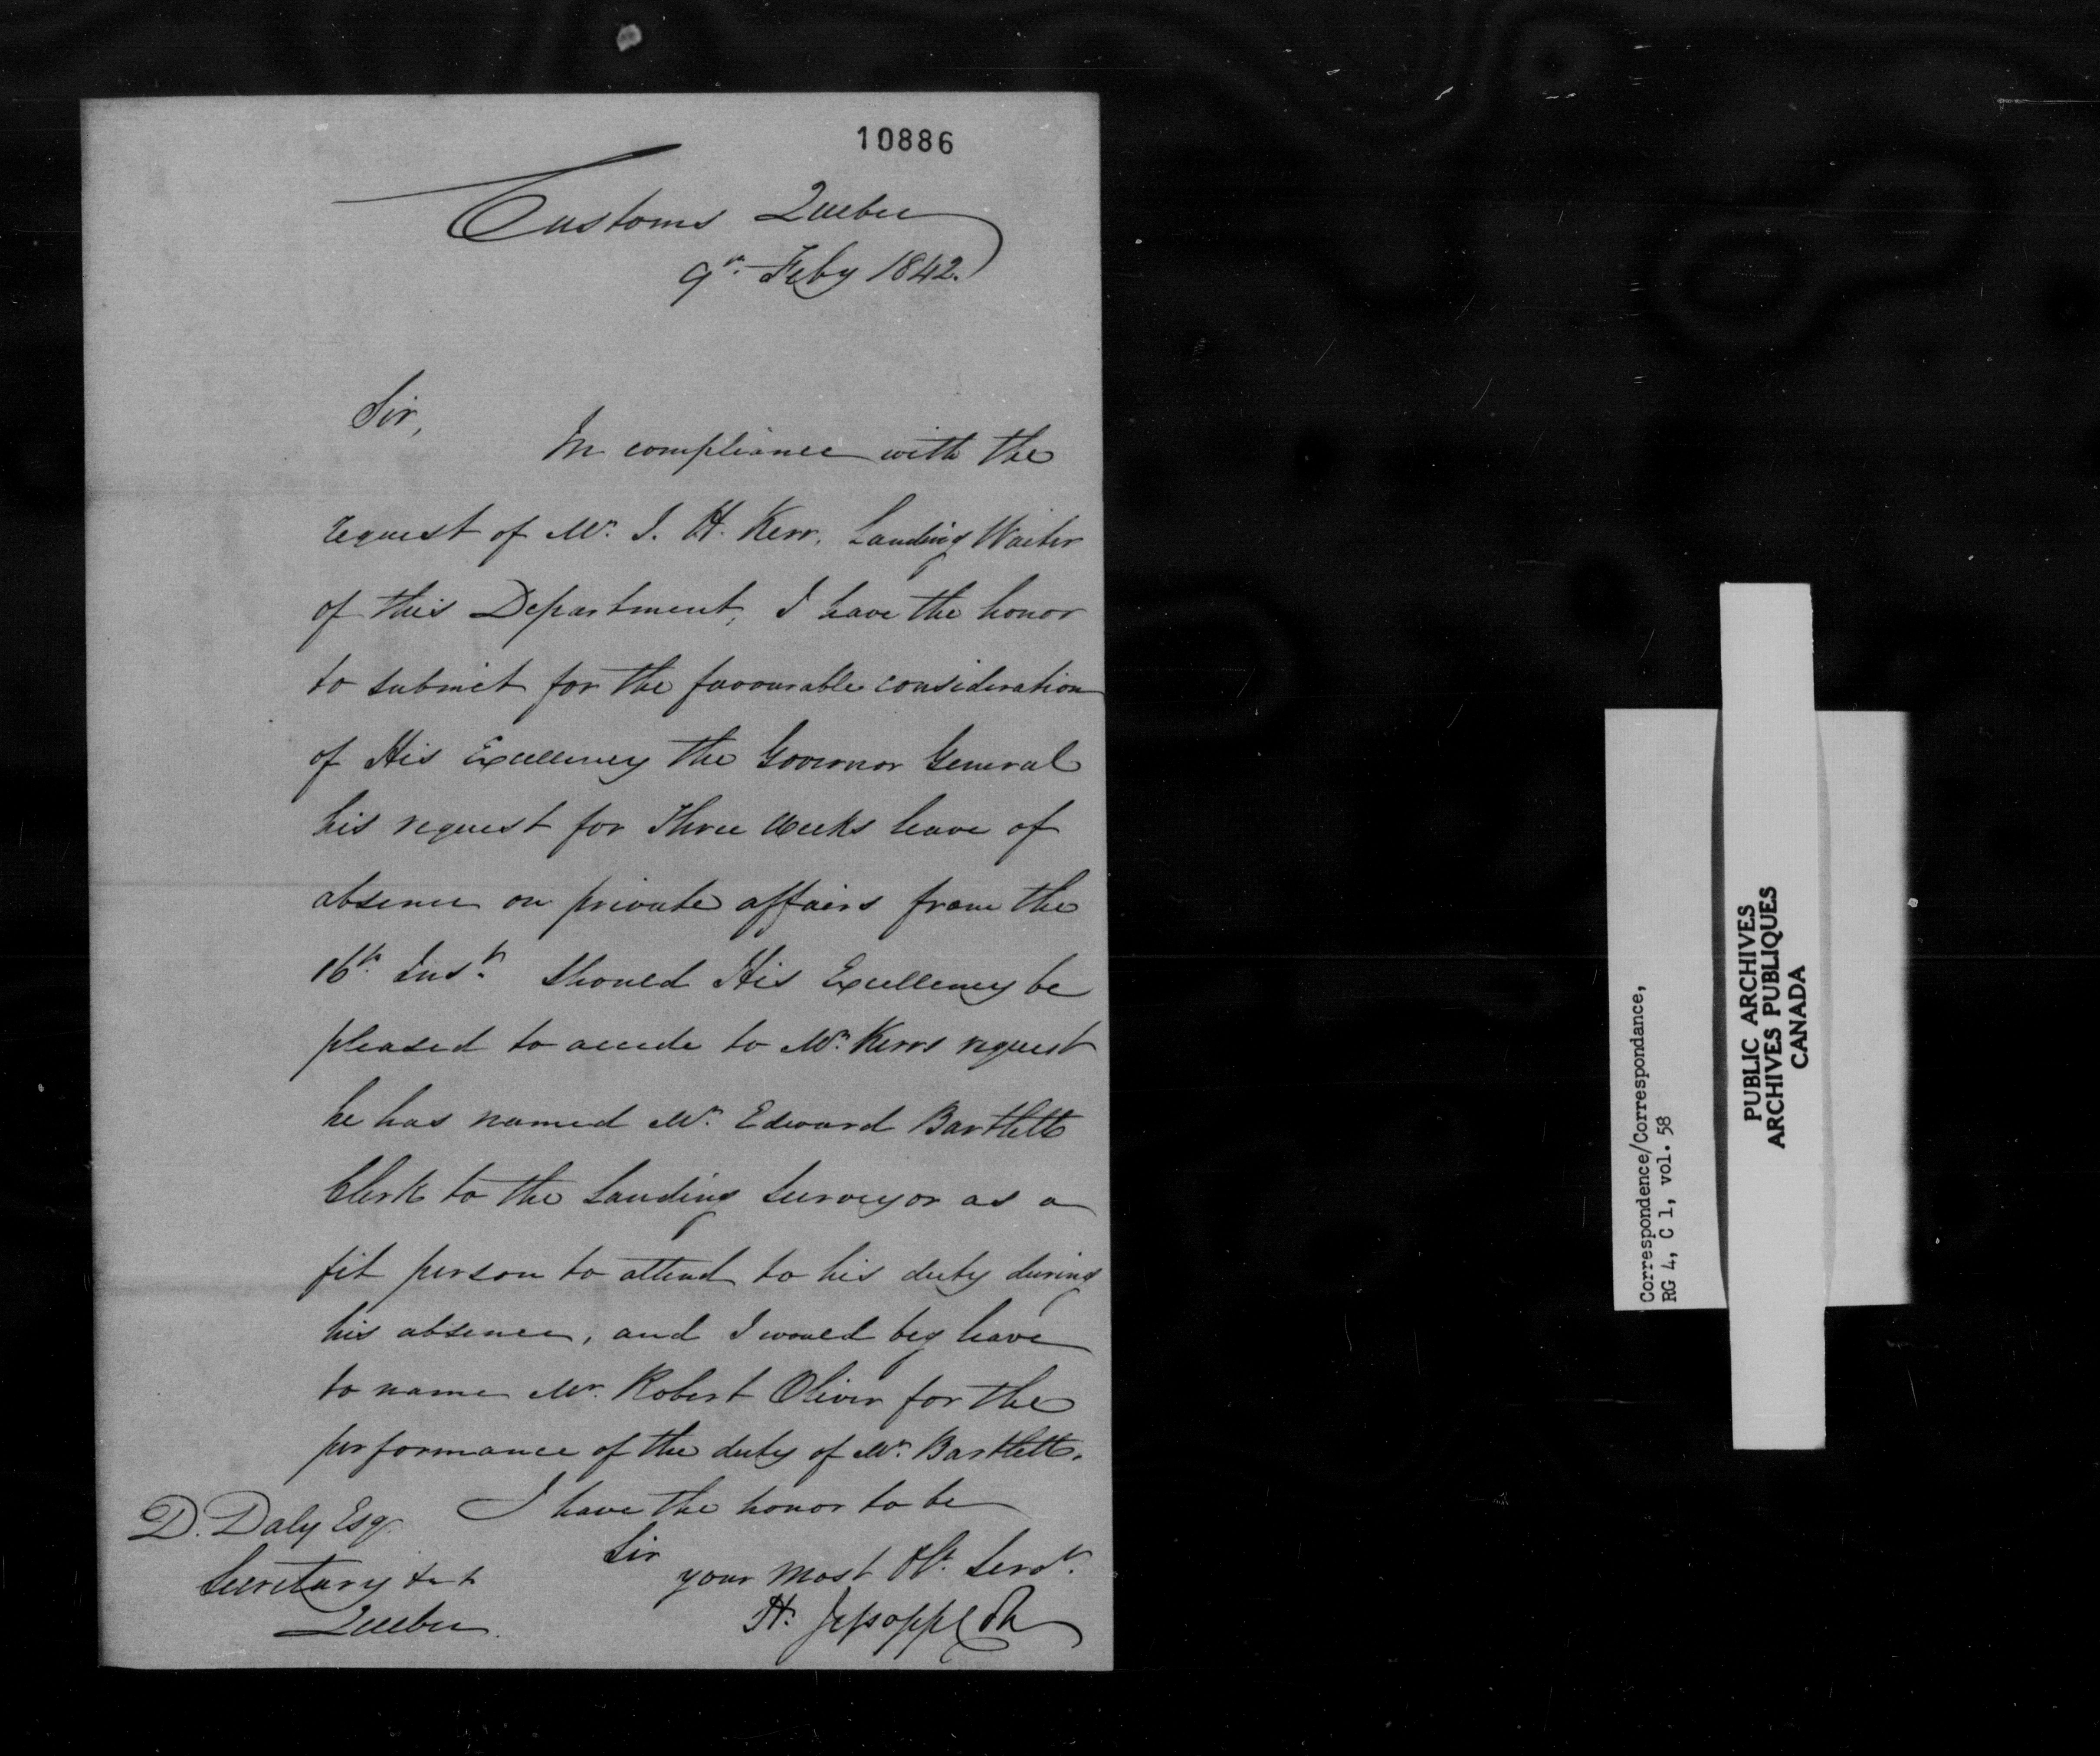 10886
Customs Quebec
9th Feby 1842.
Sir,
In compliance with the
request of Mr. J. H. Kerr, Landing Waiter
of this Department, I have the honor
to submit for the favourable consideration
of His Excellency the Governor General
his request for Three Weeks leave of
absence on private affairs from the
16th Inst. Should His Excellency be
pleased to accede to Mr. Kerrs request
he has named Mr. Edward Bartlett
Clerk to the Landing Surveyor as a
fit person to attend to his duty during
his absence, and I would beg leave
to name Mr. Robert Oliver for the
performance of the duty of Mr. Bartlett.
I have the honor to be
Sir
your most Obt. Servt.
H. Jessopp
D. Daly Esqr
Secretary
Quebec
Correspondence/Correspondance,
RG 4, C 1, vol. 58
PUBLIC ARCHIVES
ARCHIVES PUBLIQUES
CANADA